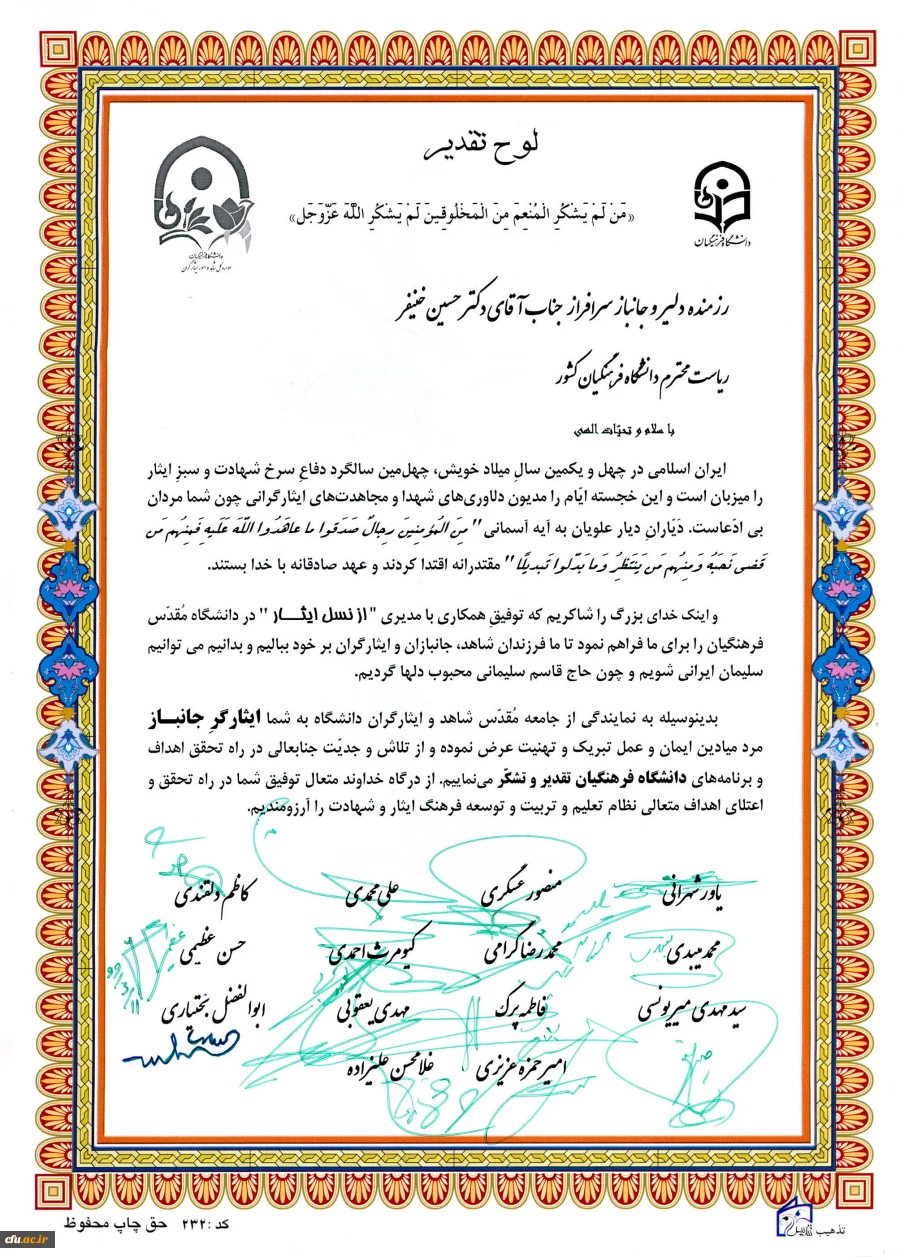 لوح تقدیر
«مَن لَمْ یَشکُرِ الْمُنعِمَ مِنَ الْمَخْلُوقِینَ لَمْ یَشْکُرِ اللَّهَ عَزَّوَجَل»
دانشگاه فرهنگیان
دانشگاه فرهنگیان
اداره کل شاهد و امور ایثارگران
رزمنده دلیر و جانباز سرافراز جناب آقای دکتر حسین خنیفر
ریاست محترم دانشگاه فرهنگیان کشور
با سلام و تحیّات الهی
ایران اسلامی در چهل و یکمین سالِ میلاد خویش، چهل‌مین سالگرد دفاعِ سرخ شهادت و سبزِ ایثار
را میزبان است و این خجسته ایّام را مدیون دلاوری‌های شهدا و مجاهدت‌های ایثارگرانی چون شما مردان
بی ادّعاست. دَیّارانِ دیار علویان به آیه آسمانی "مِنَ الْمُؤمِنِینَ رِجالٌ صَدَقُوا ما عاهَدُوا اللَّهَ عَلَیهِ فَمِنهُم مَن
قَضی نَحبَهُ وَمِنهُم مَن یَنتَظِرُ وَما بَدَّلوا تَبدیلًا" مقتدرانه اقتدا کردند و عهد صادقانه با خدا بستند.
و اینک خدای بزرگ را شاکریم که توفیقِ همکاری با مدیری "از نسل ایثـــار" در دانشگاه مُقدّس
فرهنگیان را برای ما فراهم نمود تا ما فرزندان شاهد، جانبازان و ایثارگران بر خود ببالیم و بدانیم می توانیم
سلیمان ایرانی شویم و چون حاج قاسم سلیمانی محبوب دلها گردیم.
بدینوسیله به نمایندگی از جامعه مُقدّس شاهد و ایثارگران دانشگاه به شما ایثارگرِ جانبـــاز
مرد میادین ایمان و عمل تبریک و تهنیت عرض نموده و از تلاش و جدیّت جنابعالی در راه تحقق اهداف
و برنامه‌های دانشگاه فرهنگیان تقدیر و تشکّر می‌نماییم. از درگاه خداوند متعال توفیق شما در راه تحقق و
اعتلای اهداف متعالی نظام تعلیم و تربیت و توسعه فرهنگ ایثار و شهادت را آرزومندیم.
یاور شهرانی منصور عسگری علی محمدی کاظم دلقندی
محمد میبدی محمدرضا گرامی کیومرث احمدی حسن عظیمی
۹۹/۳/۱۱
سید مهدی میریونسی فاطمه پرک مهدی یعقوبی ابوالفضل بختیاری
امیر حمزه عزیزی غلامحسن علیزاده
تذهیب
کد :۲۳۲ حق چاپ محفوظ
cfu.ac.ir